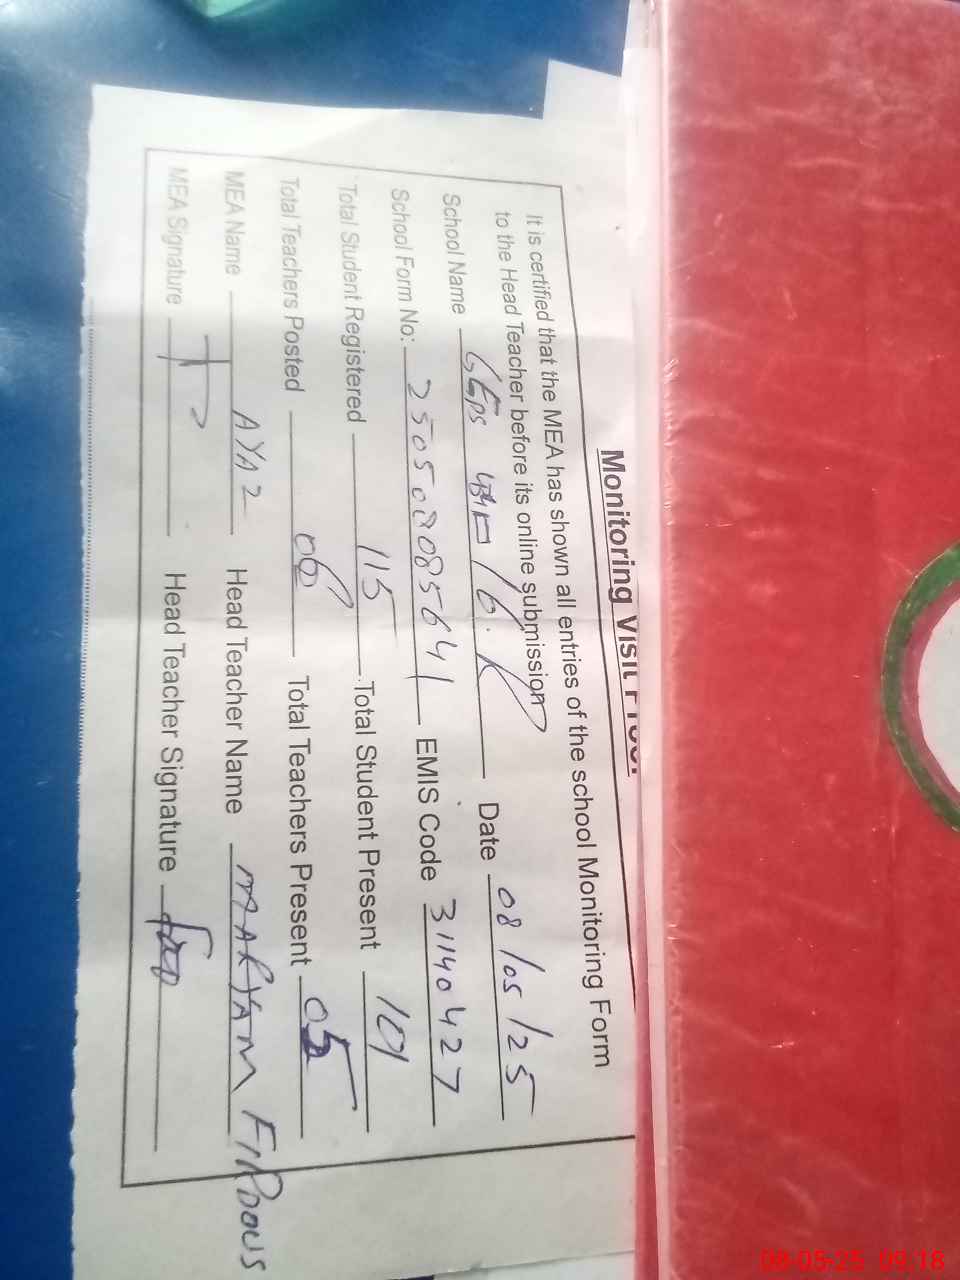 Monitoring Visit Proof
It is certified that the MEA has shown all entries of the school Monitoring Form
to the Head Teacher before its online submission
School Name GEPS Date 08/05/25
School Form No: 250508085641 EMIS Code 31140427
Total Student Registered 115 Total Student Present 101
Total Teachers Posted 06 Total Teachers Present 05
MEA Name AYAZ Head Teacher Name MARYAM FIRDOUS
MEA Signature Head Teacher Signature
08-05-25 09:18